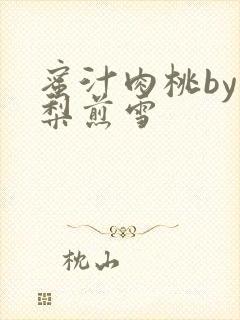 蜜汁肉桃by
梨煎雪
枕山